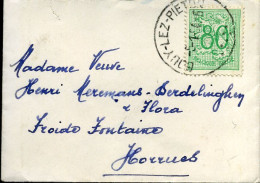 GOUY-LEZ-PIETON
80
Madame Veuve
Henri Meremans-Berdelinghen
& Flora
Froide Fontaine
Horrues